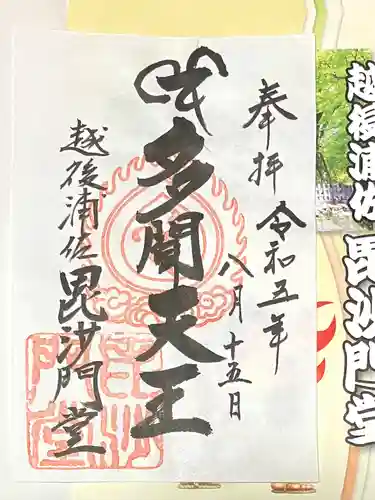 奉拝 令和五年
八月十五日
多聞天王
越後浦佐
毘沙門堂
越後浦佐 毘沙門堂